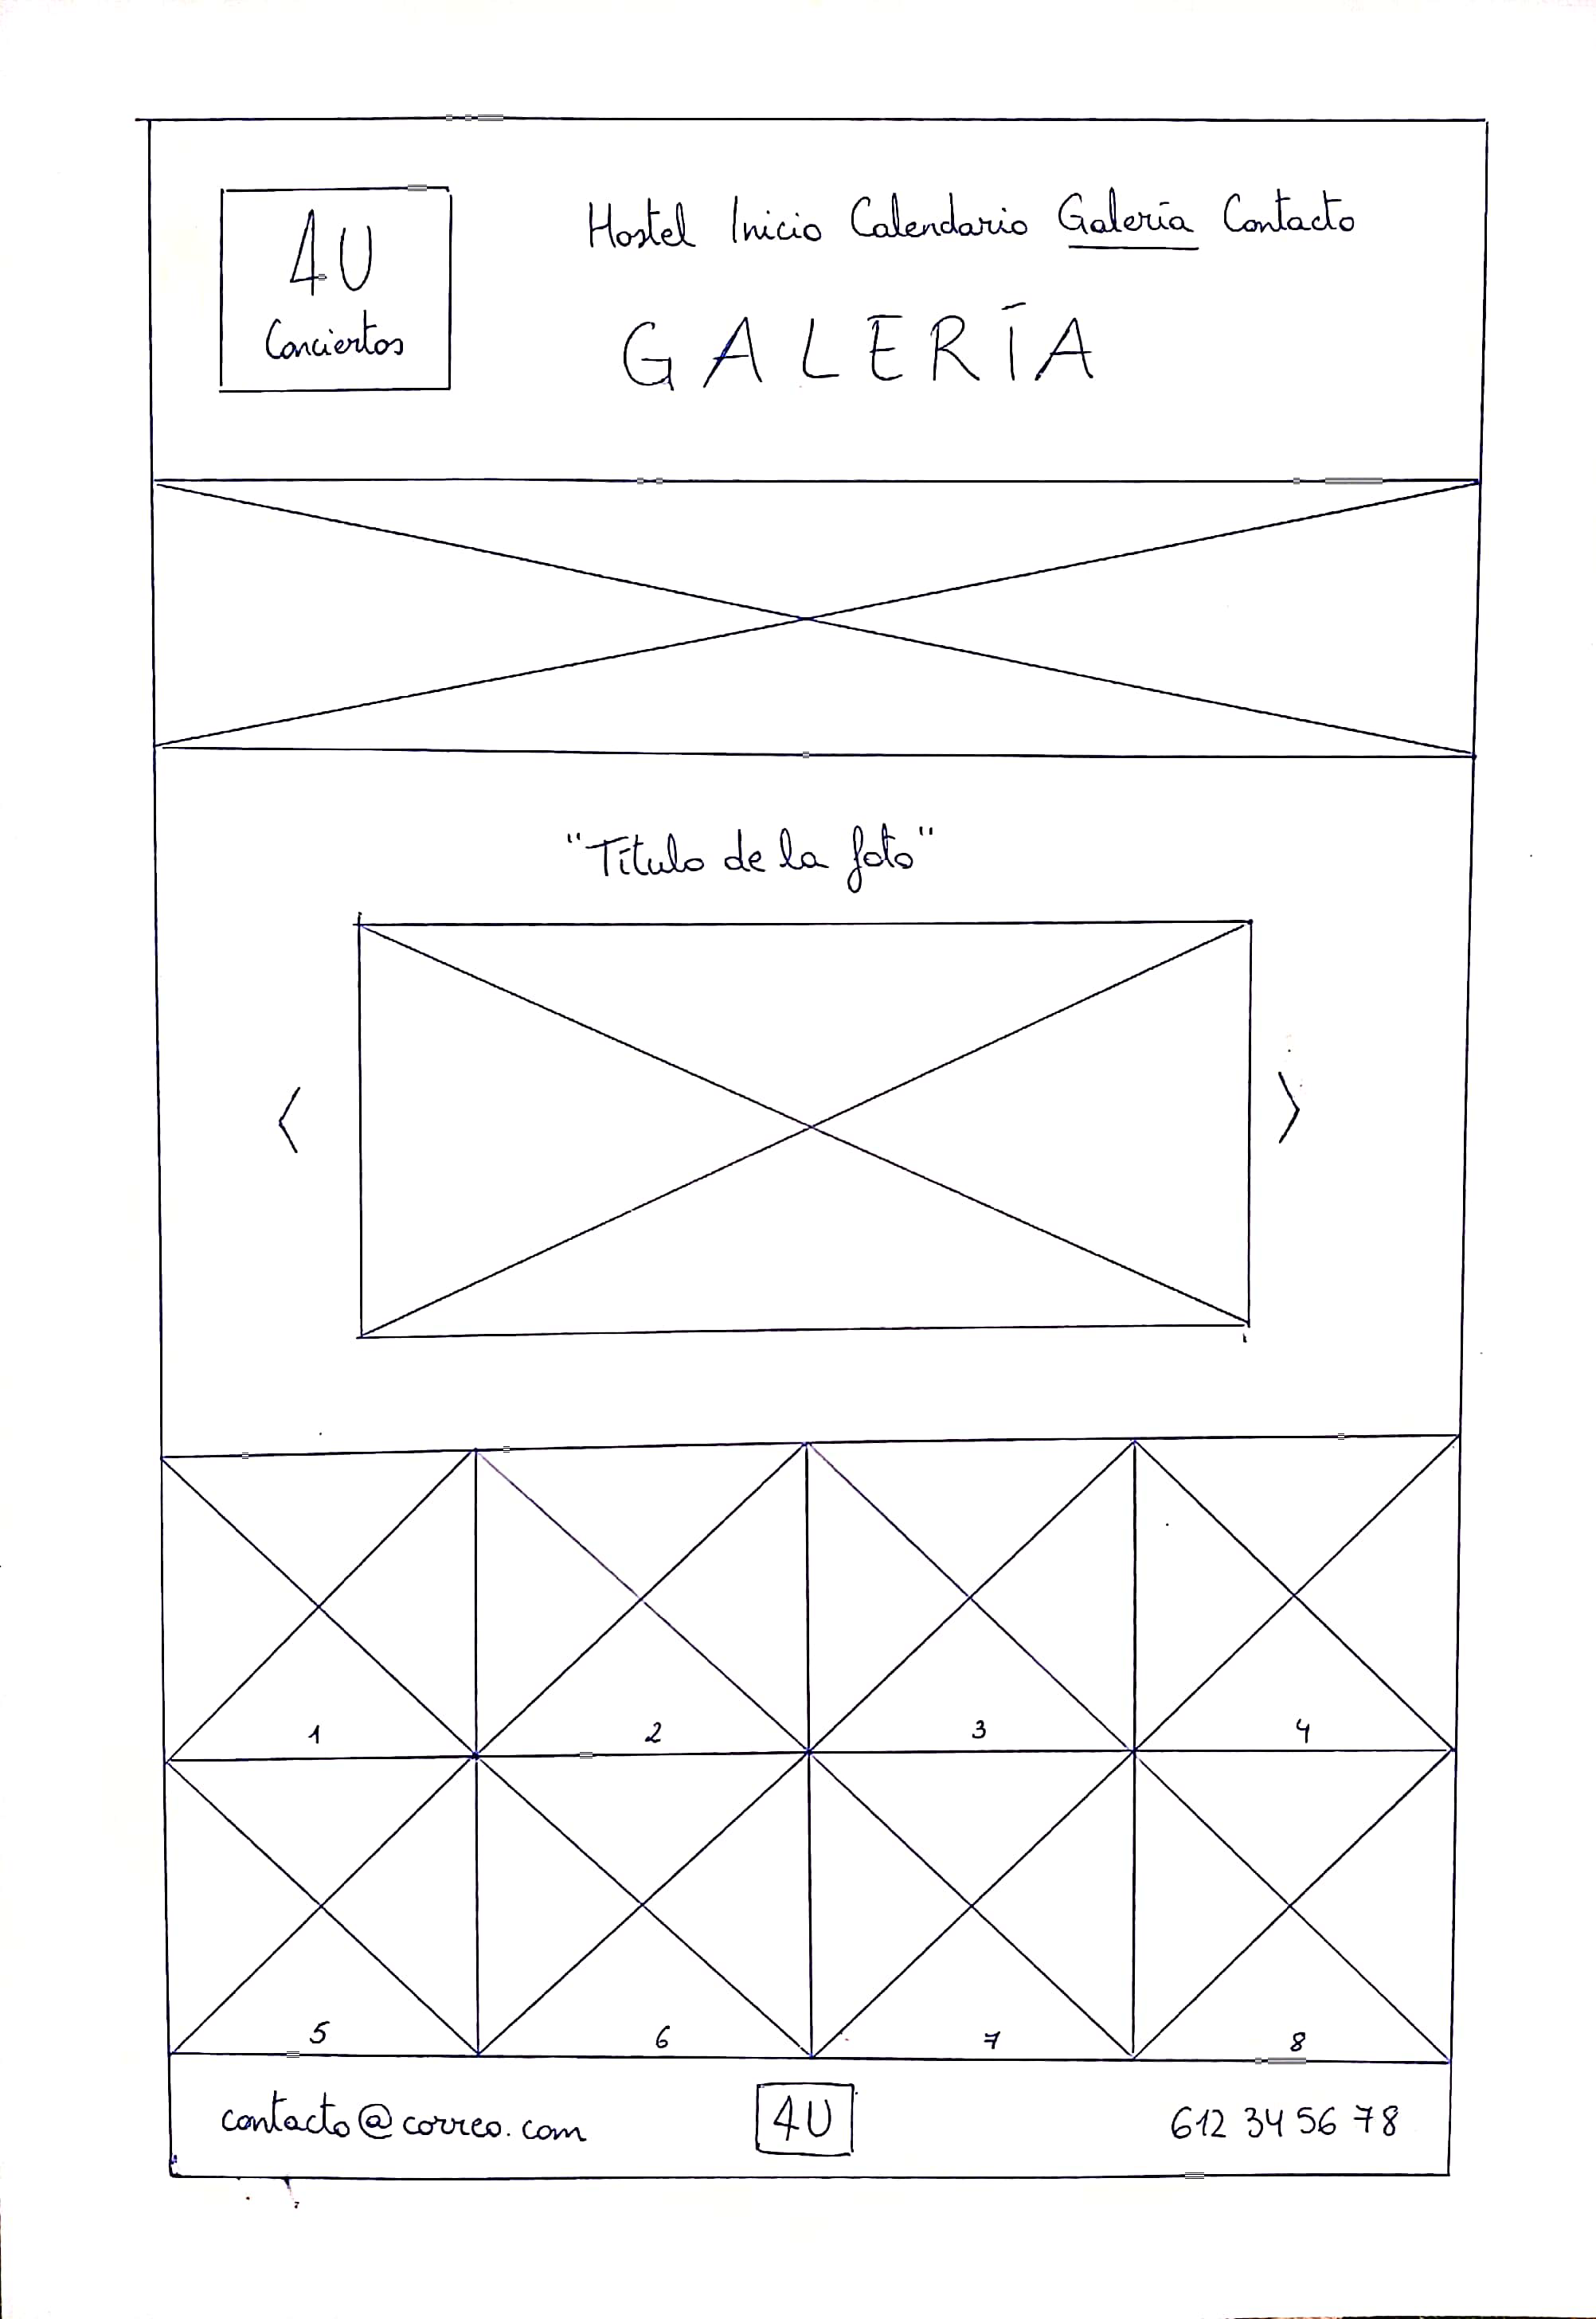 4U
Conciertos
Hostel Inicio Calendario Galería Contacto
GALERÍA
"Título de la foto"
<
>
1
2
3
4
5
6
7
8
contacto@correo.com
4U
612 34 56 78